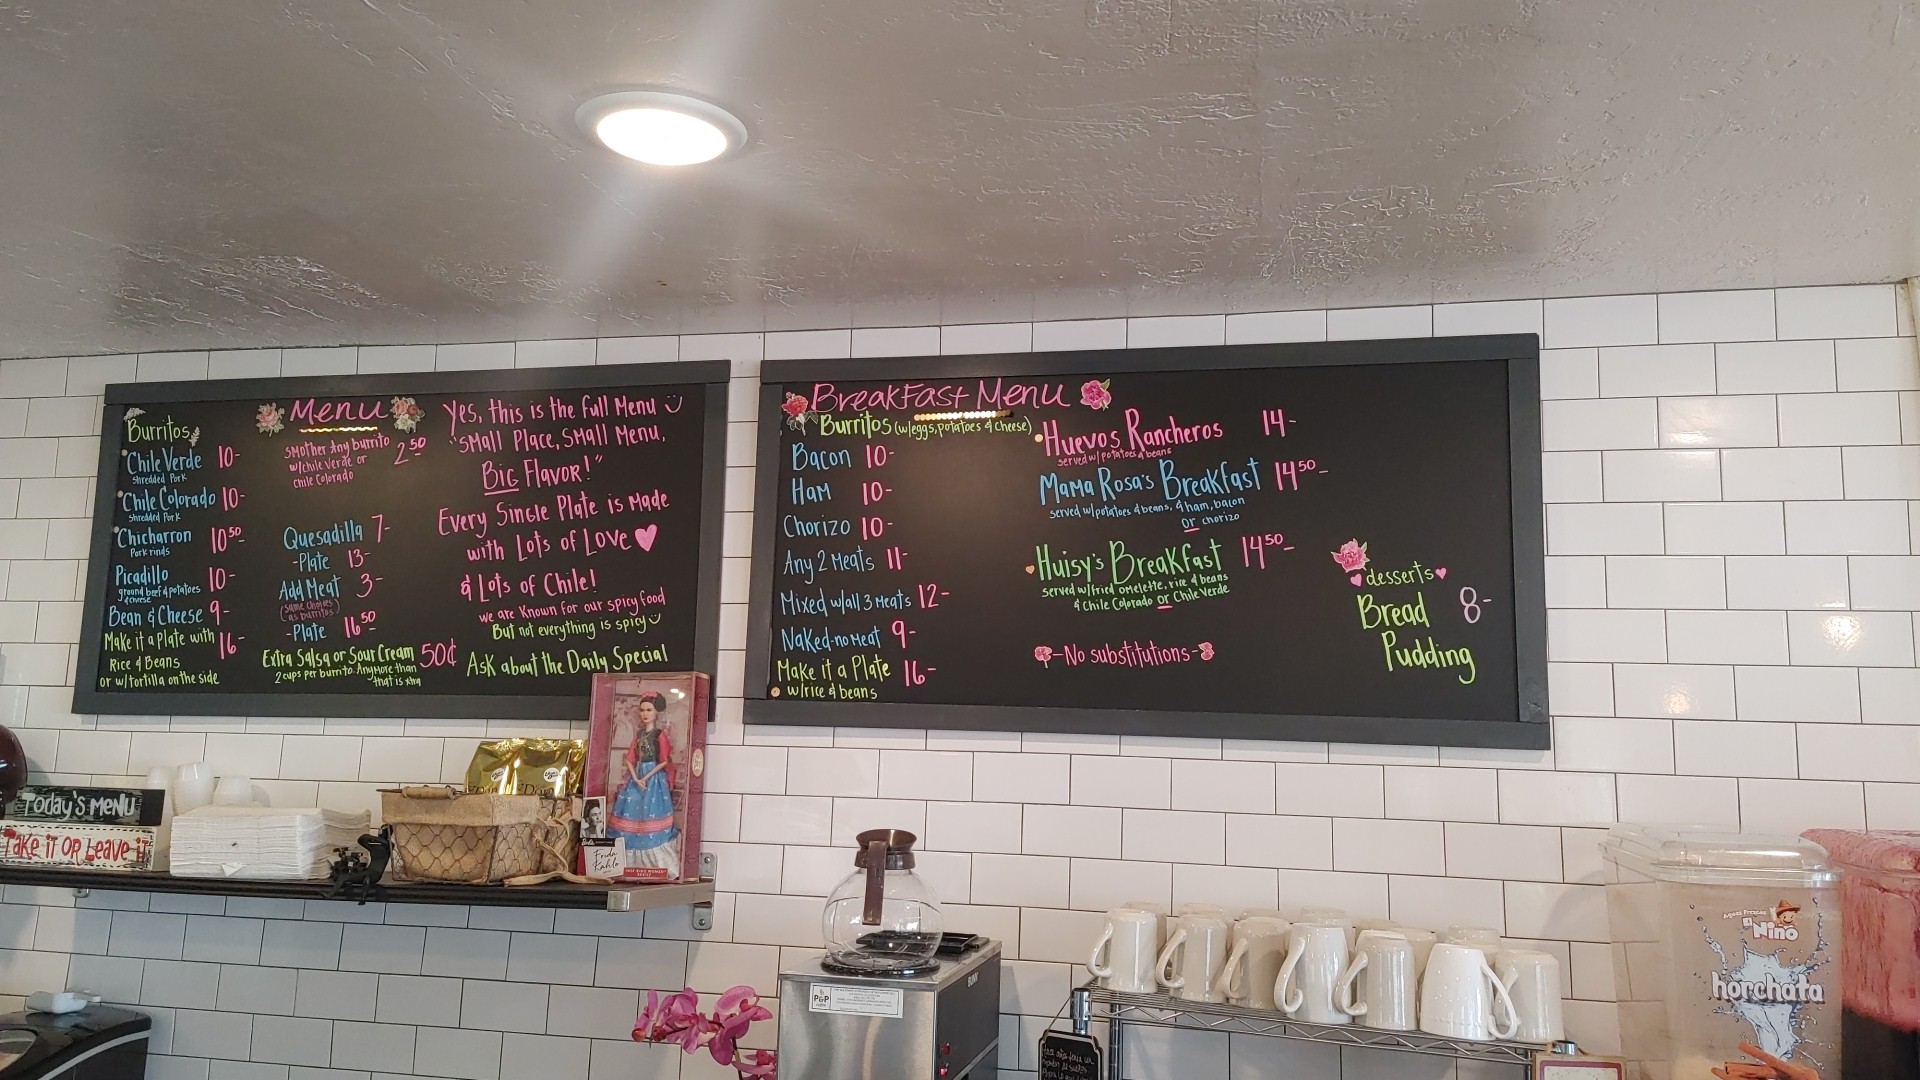 Menu
Burritos
Chile Verde 10-
shredded Pork
Chile Colorado 10-
shredded Pork
Chicharron 10.50
Pork rinds
Picadillo 10-
ground beef & potatoes
& cheese
Bean & Cheese 9-
Make it a Plate with 16-
Rice & Beans
or w/tortilla on the side
Smother Any burrito 2.50
w/Chile Verde or
Chile Colorado
Quesadilla 7-
-Plate 13-
Add Meat 3-
(same choices
as burritos)
-Plate 16.50
Extra Salsa or Sour Cream 50¢
2 cups per burrito. Anymore than
that is xtra
Yes, this is the full Menu
"Small Place, Small Menu,
Big Flavor!"
Every Single Plate is Made
with Lots of Love
& Lots of Chile!
we are known for our spicy food
But not everything is spicy
Ask about the Daily Special
Breakfast Menu
Burritos (w/eggs, potatoes & cheese)
Bacon 10-
Ham 10-
Chorizo 10-
Any 2 Meats 11-
Mixed w/all 3 Meats 12-
Naked-no meat 9-
Make it a Plate 16-
w/rice & beans
Huevos Rancheros 14-
served w/potatoes & beans
Mama Rosa's Breakfast 14.50-
served w/potatoes & beans, & ham, bacon
or chorizo
Huisy's Breakfast 14.50-
served w/fried omelette, rice & beans
& Chile Colorado or Chile Verde
-No substitutions-
desserts
Bread 8-
Pudding
Today's Menu
Take it or Leave it
Barbie
Frida
Kahlo
P&P
BUNN
Aguas Frescas
El Nino
horchata